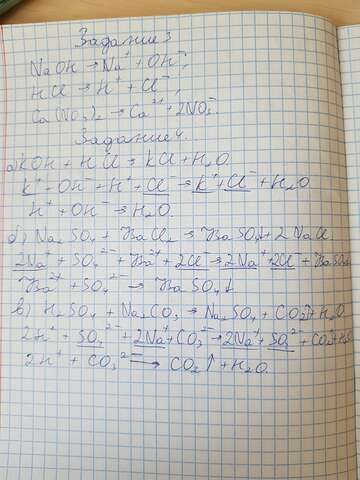 Задание 3
NaOH → Na⁺ + OH⁻;
HCl → H⁺ + Cl⁻;
Ca(NO₃)₂ → Ca²⁺ + 2NO₃⁻
Задание 4.
а) KOH + HCl → KCl + H₂O
K⁺ + OH⁻ + H⁺ + Cl⁻ → K⁺ + Cl⁻ + H₂O
H⁺ + OH⁻ → H₂O.
б) Na₂SO₄ + BaCl₂ → BaSO₄↓ + 2NaCl
2Na⁺ + SO₄²⁻ + Ba²⁺ + 2Cl⁻ → 2Na⁺ + 2Cl⁻ + BaSO₄
Ba²⁺ + SO₄²⁻ → BaSO₄↓
в) H₂SO₄ + Na₂CO₃ → Na₂SO₄ + CO₂↑ + H₂O
2H⁺ + SO₄²⁻ + 2Na⁺ + CO₃²⁻ → 2Na⁺ + SO₄²⁻ + CO₂↑ + H₂O
2H⁺ + CO₃²⁻ → CO₂↑ + H₂O.